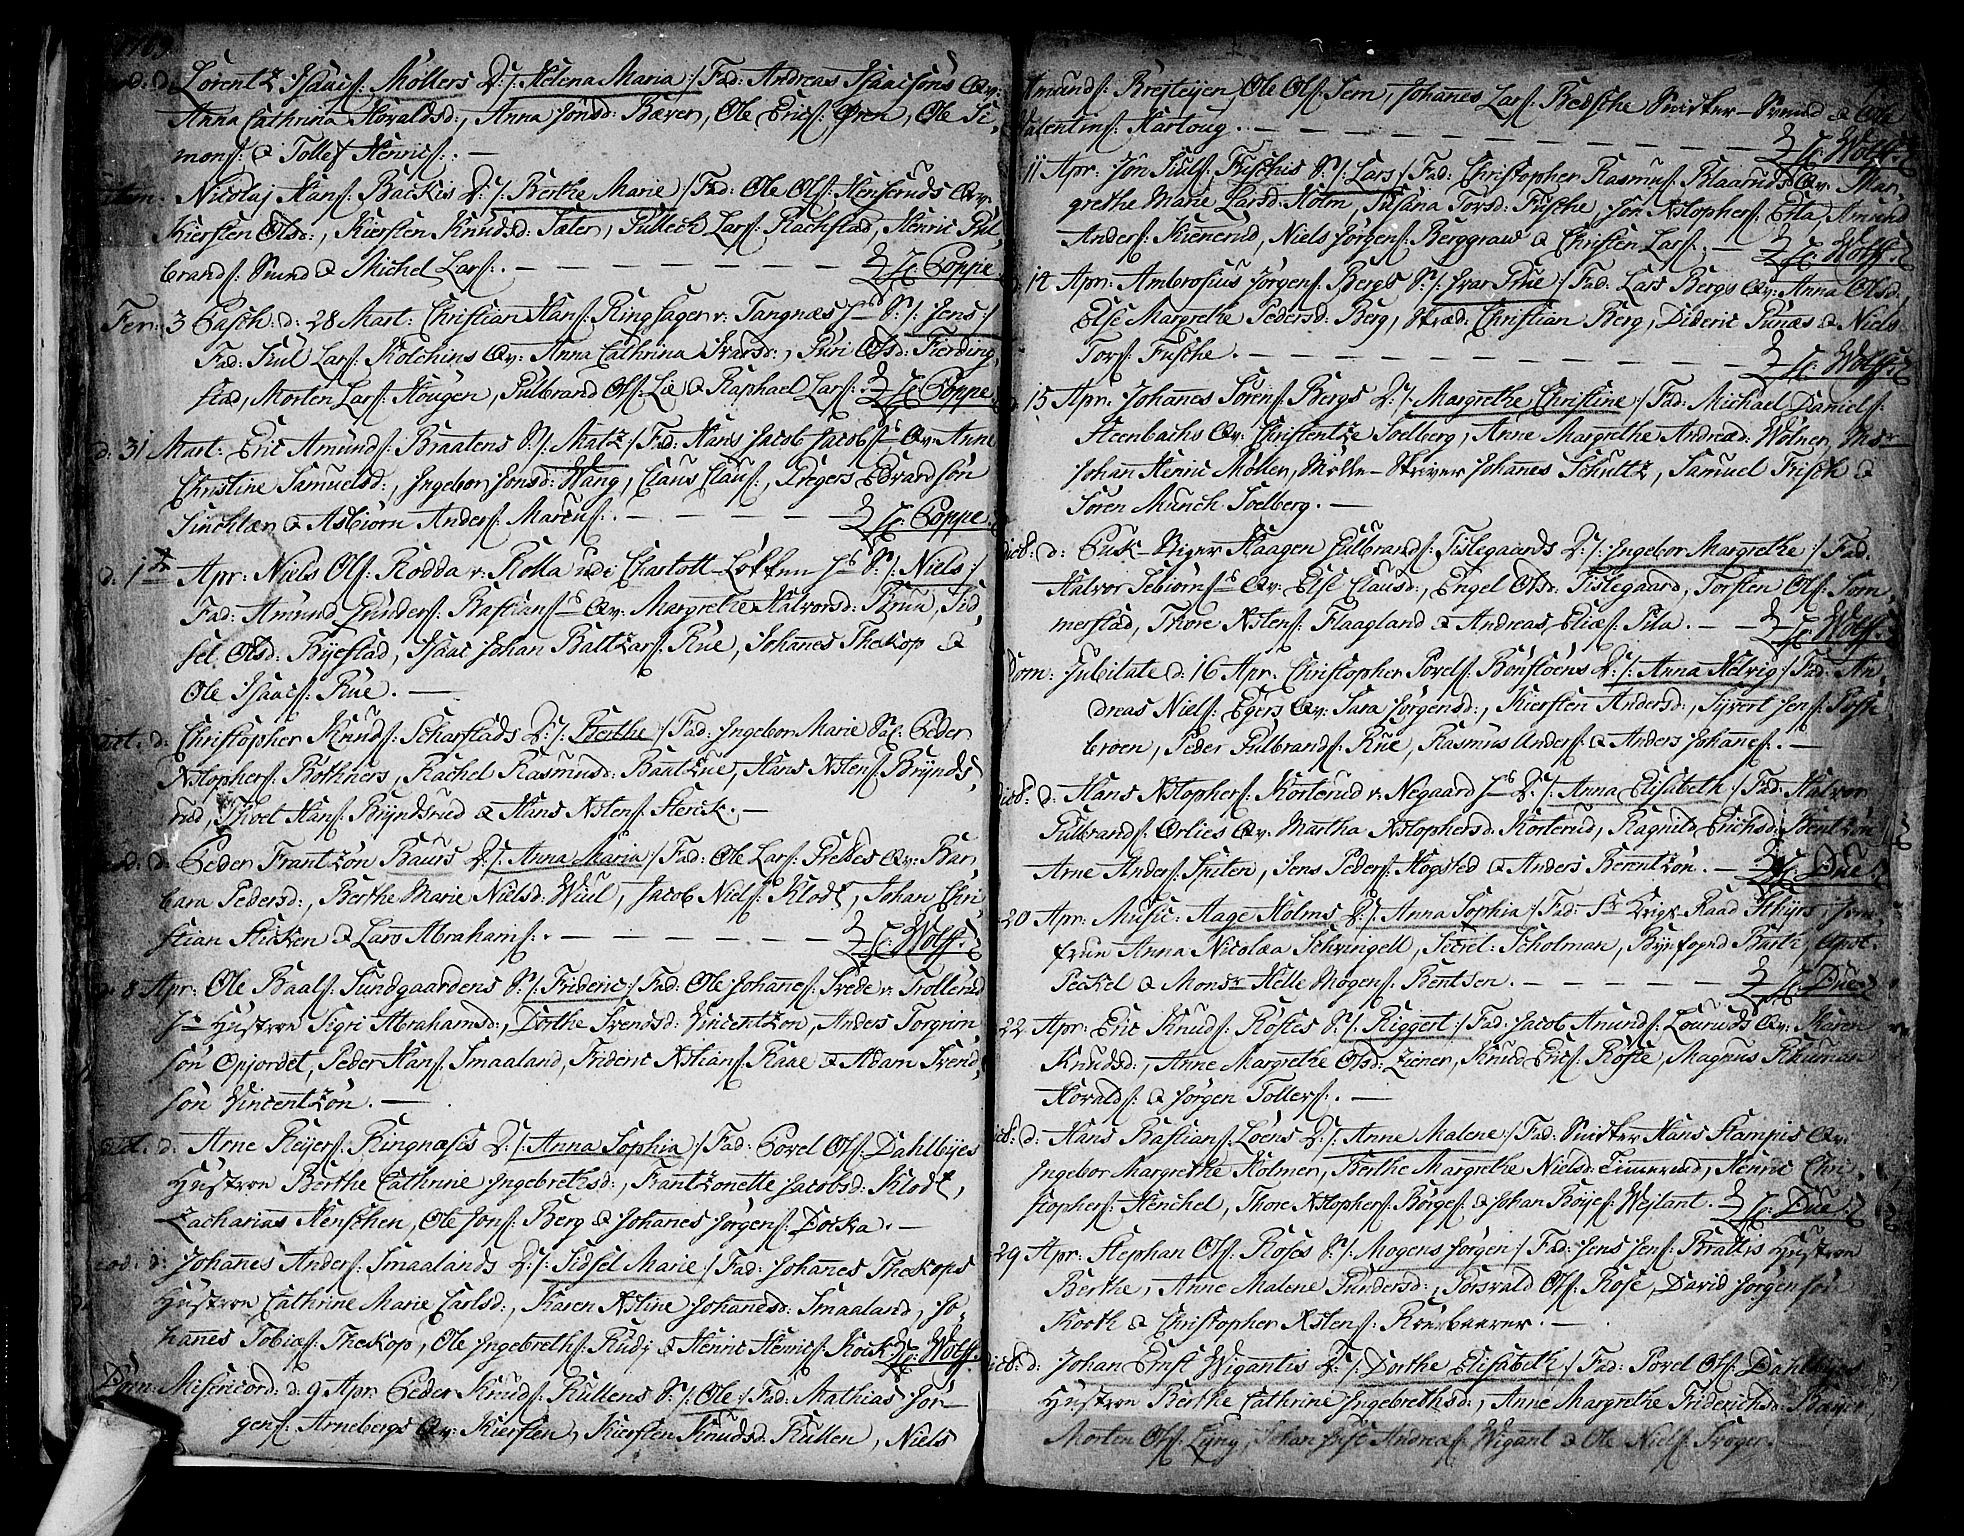 1769
eod. d. Lorentz Isaacs: Möllers D: /: Helena Maria :/ Fad: Andreas Isaacsöns Qv:
Anna Cathrina Hovaldsd:, Anna Jonsd: Bæver, Ole Erics: Øren, Ole Si-
mons: & Tollef Henrics: . —
Nicolaj Hans: Backes D: /: Berthe Marie :/ Fad: Ole Ols: Henseruds Qv:
Kiersten Olsd:, Kiersten Knudsd: Sæter, Lars: Rachstad, Henric Gul-
brands: Smed & Michel Lars: . — Hr: Poppe.
Fer: 3 Pasch: d: 28 Mart: Christian Hans: Ringsager v: Tangnæs S: /: Jens :/
Fad: Lars: Kolchins Qv: Anna Cathrina Ivarsd:, Guri Olsd: Fierding-
stad, Morten Lars: Hougen, Gulbrand Ols: Lie & Raphael Lars: Hr: Poppe.
d. 31 Mart: Eric Amunds: Braatens S: /: Matz :/ Fad: Hans Jacob Jacobs: Qv: Anne
Christine Samuelsd:, Ingebor Jonsd: Wang, Claus Claus:, Gregers Edvardsön
Sinchlær & Asbiörn Anders: Marcus: . — Hr: Poppe.
d. 1 Apr: Niels Ols: Rodda v: Rolla udi Charlott-Lökken S: /: Niels :/
Fad: Amund Gunders: Bastians: Qv: Margrethe Halvorsd: Bruu, Sid-
sel Olsd: Byestad, Isaac Johan Baltzars: Rue, Johanes Theskop &
Ole Isaacs: Rue . —
Christopher Knuds: Scharstads D: /: Berthe :/ Fad: Ingebor Marie Sal: Peder
Xstophers: Bothners, Rachel Rasmusd: Bautzue, Hans Xstens: Brynds-
rud, Hans: Bryndsrud & Hans Xstens: Sterck . —
eod. d. Peder Frantzön Baurs D: /: Anna Maria :/ Fad: Ole Lars: Qv: Bar-
bara Pedersd:, Berthe Marie Nielsd: Wiul, Jacob Niels: Klodt, Johan Chri-
stian Sticken & Lars Abrahams: . — Hr: Wolff.
d. 8 Apr: Ole Baals: Sundgaardens S: /: Frideric :/ Fad: Ole Johanes: Svede v: Trollerud
Hustroe Sigri Abrahamsd:, Dorthe Svendsd: Vincentzon, Anders Torgrim-
sön Opjordet, Peder Hans: Smaaland, Frideric Xstians: Raae & Adam Svend-
sön Vincentzön . —
Arne Reyers: Ringnæsis D: /: Anna Sophia :/ Fad: Povel Ols: Dahlbyes
Hustroe Berthe Cathrine Ingebrethsd:, Frantzonette Jacobsd: Klodt,
Zacharias Henschen, Ole Jons: Berg & Johanes Jörgens: Docka . —
eod: d: Johanes Anders: Smaalands D: /: Sidsel Marie :/ Fad: Johanes Theskops
Hustroe Cathrine Marie Carlsd:, Karen Xstine Johanesd: Smaaland, Jo-
hanes Tobias: Theskop, Ole Ingebreths: Rudj & Henric Henrics: Kock: Hr: Wolff.
Dom: Misericord: d: 9 Apr: Peder Knuds: Rullens S: /: Ole :/ Fad: Mathias Jör-
gens: Arnebergs Qv: Kiersten, Kiersten Knudsd: Rullen, Niels
Amunds: Krejteyen, Ole Ols: Sem, Johanes Lars: Bedsche Snister-Svend & Ole
Valentins: Hartoug . — Hr: Wolff.
11 Apr: Jon Fuschis S: /: Lars :/ Fad: Christopher Rasmus: Blaaruds Qv: Mar-
grethe Marie Larsd: Holm, Susana Torsd: Fusche, Jon Xstophers: Etla, Amund
Anders: Kienerud, Niels Jörgens: Berggraw & Christen Lars: . — Hr: Wolff.
14 Apr: Ambrosius Jörgens: Bergs S: /: Ivar Prue :/ Fad: Lars Bergs Qv: Anna Olsd,
Else Margrethe Pedersd: Berg, Skræd: Christian Berg, Dideric Funæs & Niels
Tors: Fusche . — Hr: Wolff.
15 Apr: Johanes Sörens: Bergs D: /: Margrethe Christine :/ Fad: Michael Daniels:
Steenbachs Qv: Christentze Soelberg, Anne Margrethe Andræd: Wölner, Msr
Johan Henric Möller, Mölle-Skriver Johanes Schultz, Samuel Frisch &
Sören Münch Soelberg . —
Dict: d: Pusk-Biger Haagen Gulbrands: Fislegaards D: /: Ingebor Margrethe :/ Fad.
Halvor Sebiörns: Qv: Else Clausd:, Engel Olsd: Fislegaard, Torsten Ols: Som-
merstad, Thore Xstens: Flaagland & Andreas Elias: Pila . — Hr: Wolff.
Dom: Jubilate d: 16 Apr: Christopher Povels: Bonsloens D: /: Anna Helvig :/ Fad: An-
dreas Niels: Egers Qv: Sara Jörgensd:, Kiersten Andersd:, Syvert Jens: Foss-
broen, Peder Gulbrands: Rue, Rasmus Anders: & Anders Johanes: . —
Dict: d: Hans Xstophers: Korterud v: Negaard D: /: Anna Elisabeth :/ Fad: Halvor
Gulbrands: Ørlies Qv: Martha Xstophersd: Korterud, Ragnild Erichsd: Bentzön
Arne Anders: Spiten, Jens Peders: Hogsted & Anders Berentzön . — Hr: Due.
20 Apr: Music: Aage Holms D: /: Anna Sophia :/ Fad: Hr Krigs-Raad Schyrs, Jom-
frue Anna Nicolæa Schvingell, Secret: Scholman, Byefogd Barth, Apot:
Peckel & Monsr Helle Mogens: Bentsen . — Hr: Due.
22 Apr: Eric Knuds: Röstes S: /: Riggert :/ Fad: Jacob Amunds: Louruds Qv: Karen
Knudsd:, Anne Margrethe Olsd: Ziener, Knud Erics: Röste, Magnus Rauman
Hovalds: & Jörgen Tollers: . —
Dict: d: Hans Bastians: Löens D: /: Anne Malene :/ Fad: Snister Hans Stampis Qv:
Ingebor Margrethe Holmer, Berthe Margrethe Nielsd: Timerud, Henric Chri-
stophers: Henchel, Thore Xstophers: Börges: & Johan Böyes: Wejlant. Hr: Due.
29 Apr: Stephan Ols: Roses S: /: Mogens Jörgen :/ Fad: Jens Jens: Brattis Hustroe
Berthe, Anne Malene Gundersd:, Torsvald Ols: Rose, David Jörgensön
Korth & Christopher Xstens: Reerbærer . —
Dict: d: Johan Ernst Wigantis D: /: Dorthe Elisabeth :/ Fad: Povel Ols: Dahlbyes
Hustroe Berthe Cathrine Ingebrethsd:, Anne Margrethe Friderichsd: Bæver,
Morten Ols: Lyng, Johan Just Andreas: Wigant & Ole Niels: Troger. —